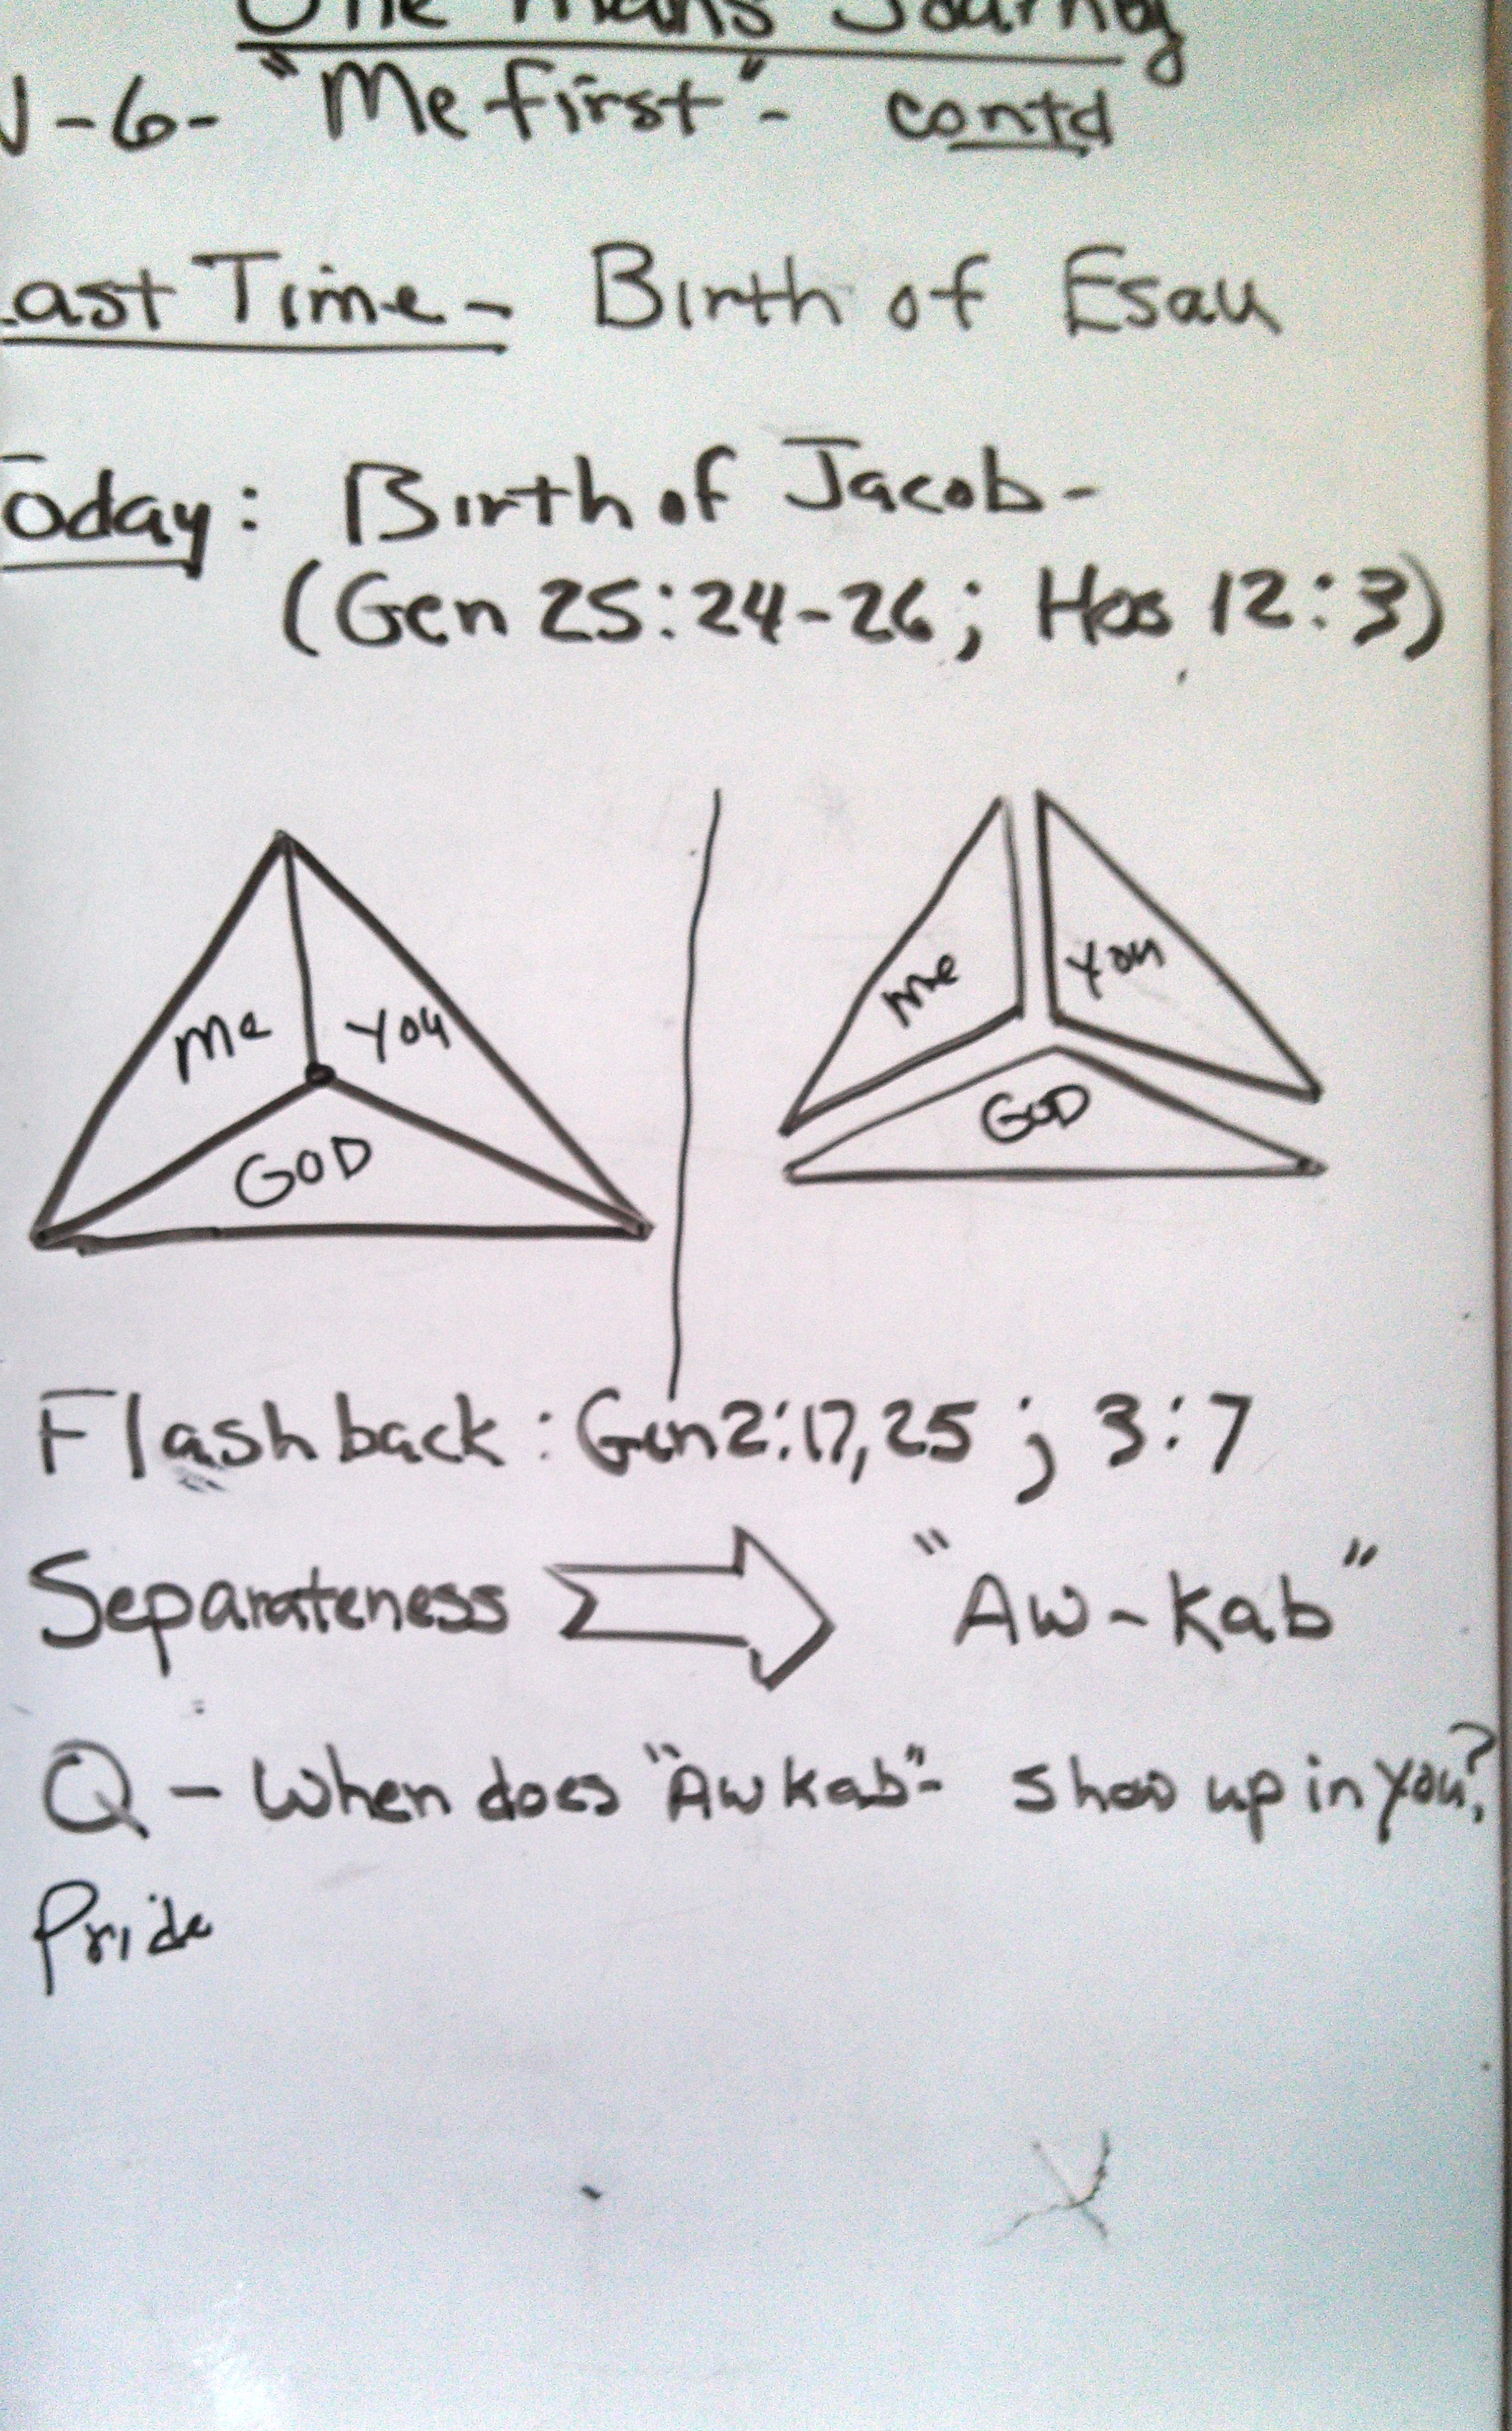 One Mans Journey
-6- "Me first"- contd
Last Time- Birth of Esau
Today: Birth of Jacob-
(Gen 25:24-26; Hos 12:3)
Me You
GOD
Me You
GOD
Flashback: Gen 2:17,25; 3:7
Separateness "Aw-kab"
Q - When does "Aw kab"- show up in you?
Pride